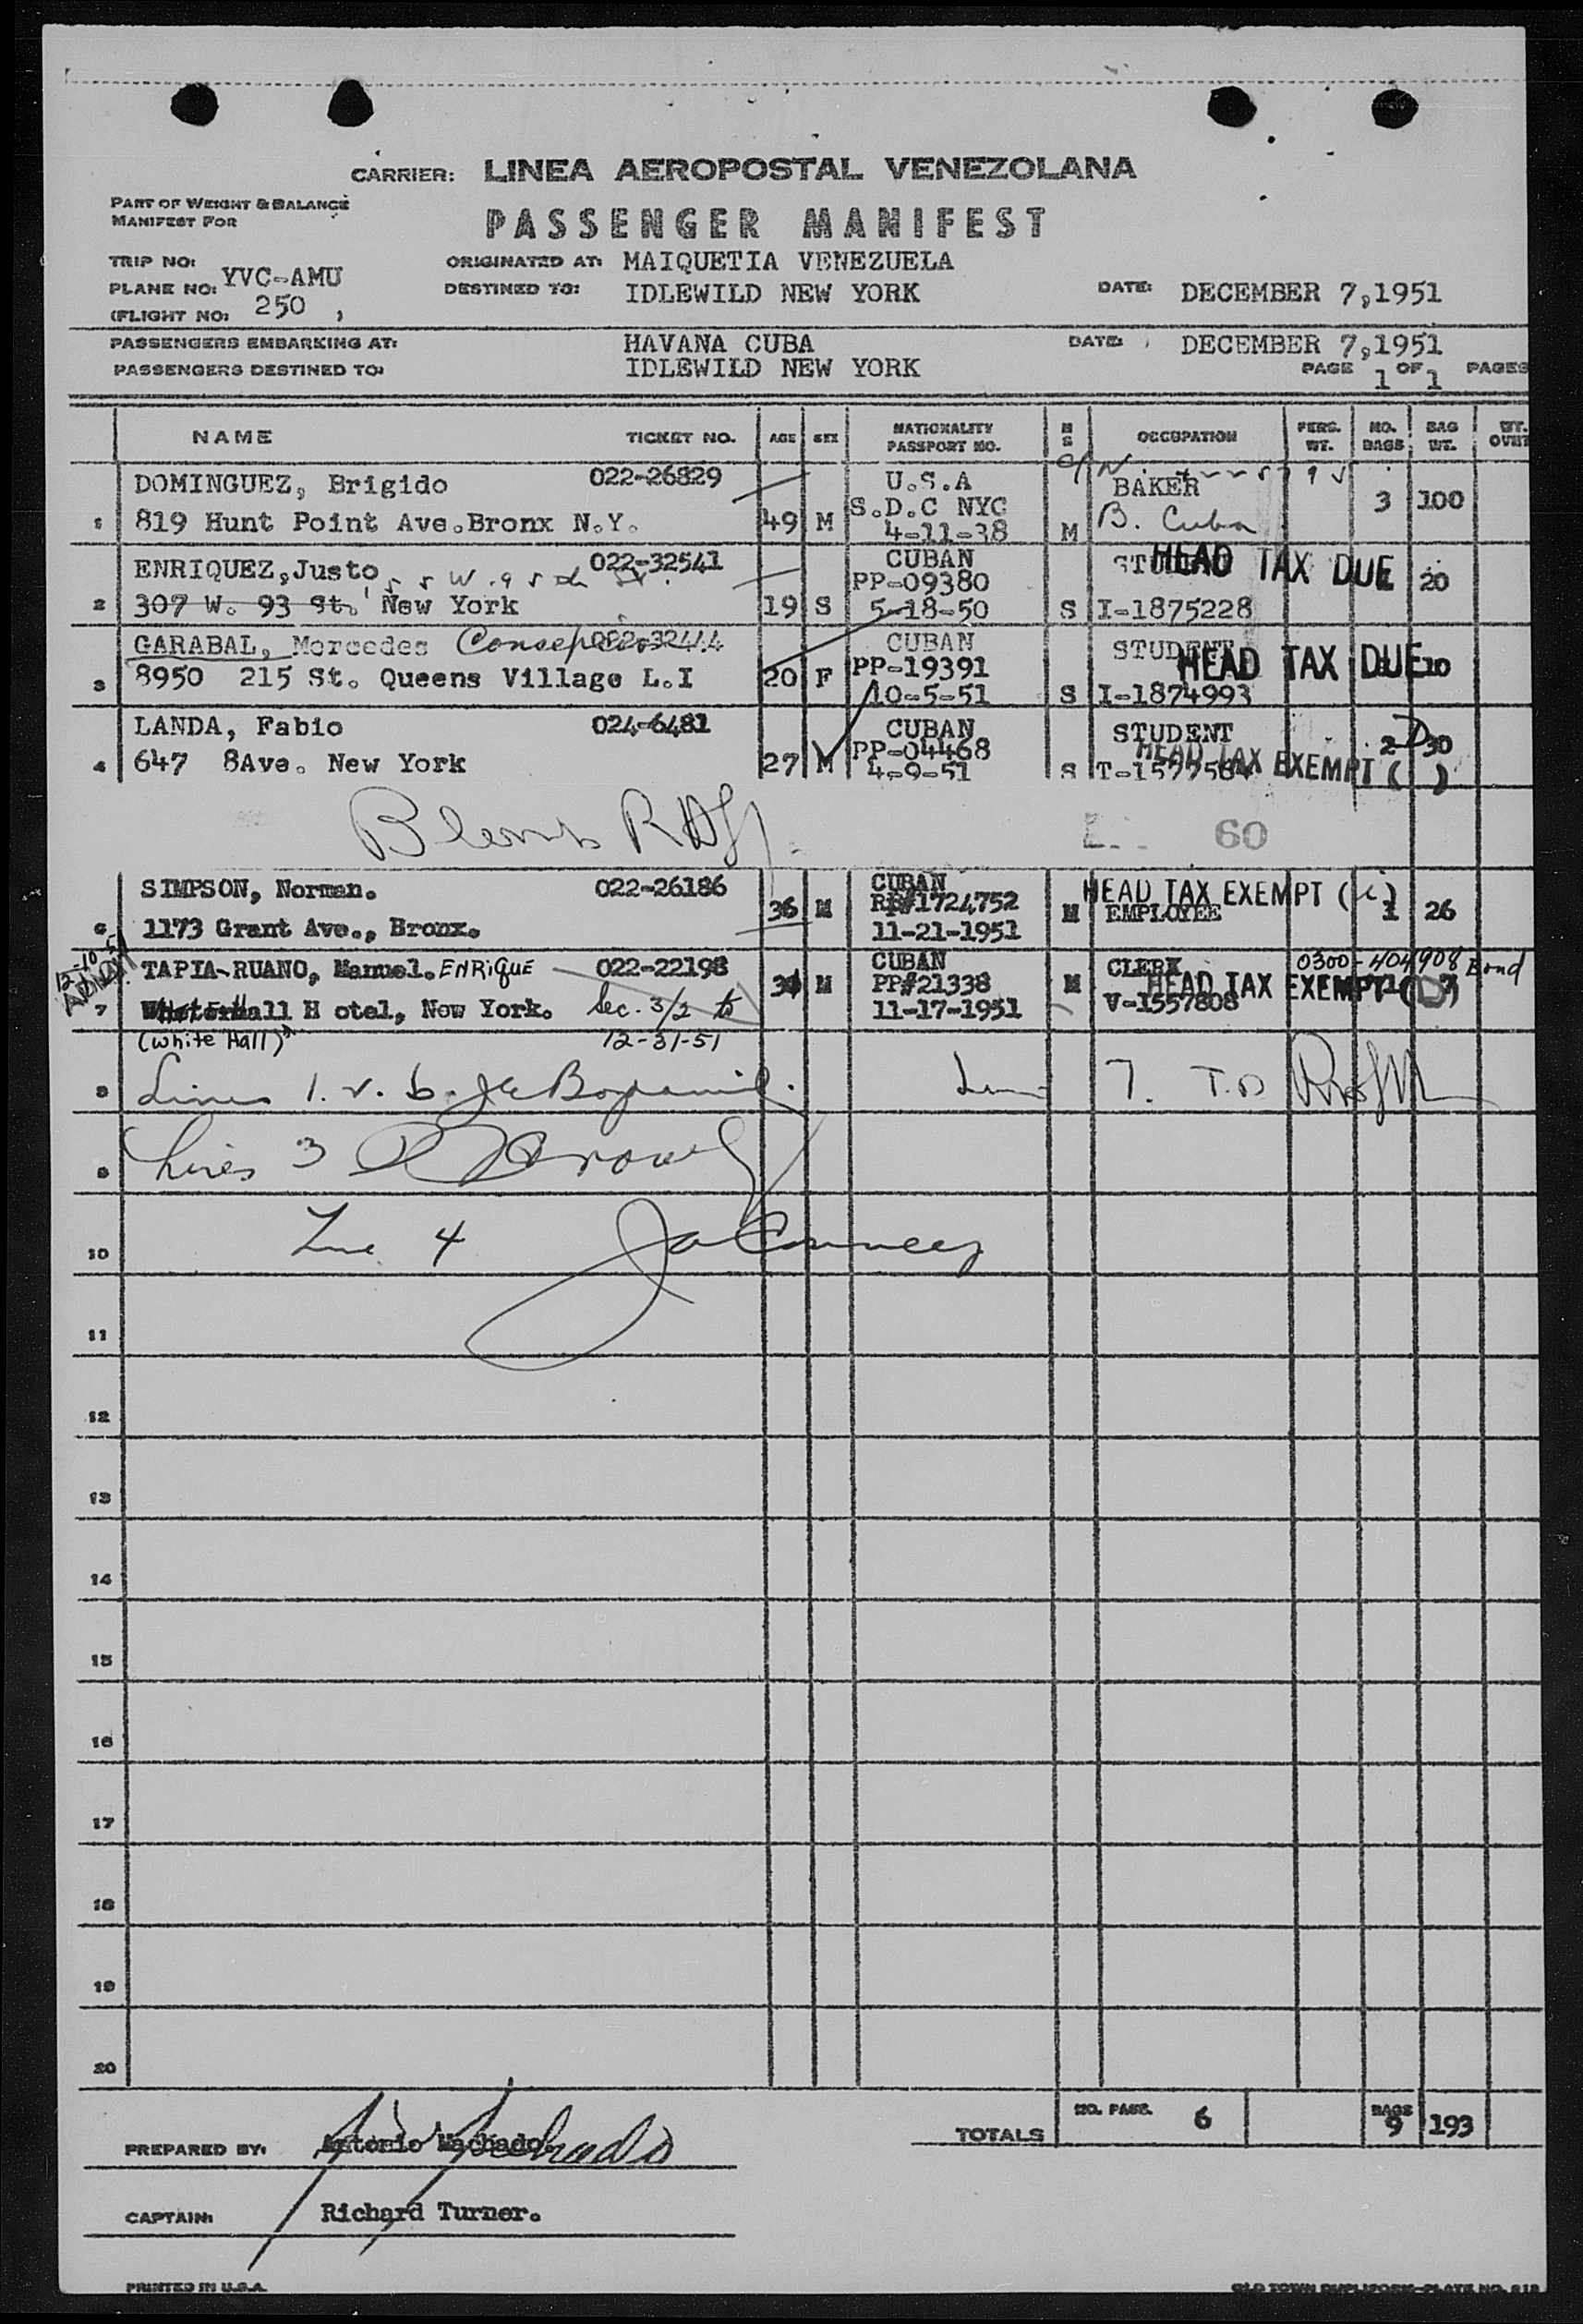 CARRIER: LINEA AEROPOSTAL VENEZOLANA
PART OF WEIGHT & BALANCE
MANIFEST FOR
PASSENGER MANIFEST
TRIP NO:
PLANE NO: YVC-AMU
(FLIGHT NO: 250 )
ORIGINATED AT: MAIQUETIA VENEZUELA
DESTINED TO: IDLEWILD NEW YORK
DATE: DECEMBER 7,1951
PASSENGERS EMBARKING AT: HAVANA CUBA
DATE: DECEMBER 7,1951
PASSENGERS DESTINED TO: IDLEWILD NEW YORK
PAGE 1 OF 1 PAGES
NAME TICKET NO. AGE SEX NATIONALITY PASSPORT NO. M S OCCUPATION PERS. WT. NO. BAGS BAG WT. WT.
DOMINGUEZ, Brigido 022-26829 U.S.A BAKER
1 819 Hunt Point Ave.Bronx N.Y. 49 M S.D.C NYC M B. Cuba 3 100
4-11-38
ENRIQUEZ,Justo 022-32541 CUBAN HEAD TAX DUE
PP-09380 20
2 307 W. 93 St. New York 19 S 5-18-50 S I-1875228
GARABAL, Mercedes CUBAN STUDENT
3 8950 215 St. Queens Village L.I 20 F PP-19391 HEAD TAX DUE 10
10-5-51 S I-1874993
LANDA, Fabio 024-6481 CUBAN STUDENT
4 647 8Ave. New York 27 M PP-04468 HEAD TAX EXEMPT ( ) 2 30
4-9-51 S
60
SIMPSON, Norman. 022-26186 CUBAN HEAD TAX EXEMPT (i)
6 1173 Grant Ave., Bronx. 36 M RP#1724752 M EMPLOYEE 1 26
11-21-1951
TAPIA-RUANO, Manuel. ENRiQUE 022-22198 CUBAN CLERK 0300-404908 Bond
PP#21338 M HEAD TAX EXEMPT (D)
7 Hotel, New York. Sec. 3/2 to M 11-17-1951 V-1557808
(White Hall) 12-31-51
8 Lines 1. 7. T.D
9 Lines 3
10 Line 4
11
12
13
14
15
16
17
18
19
20
TOTALS NO. PASS. 6 BAGS 9 193
PREPARED BY: Antonio Machado.
CAPTAIN: Richard Turner.
PRINTED IN U.S.A.